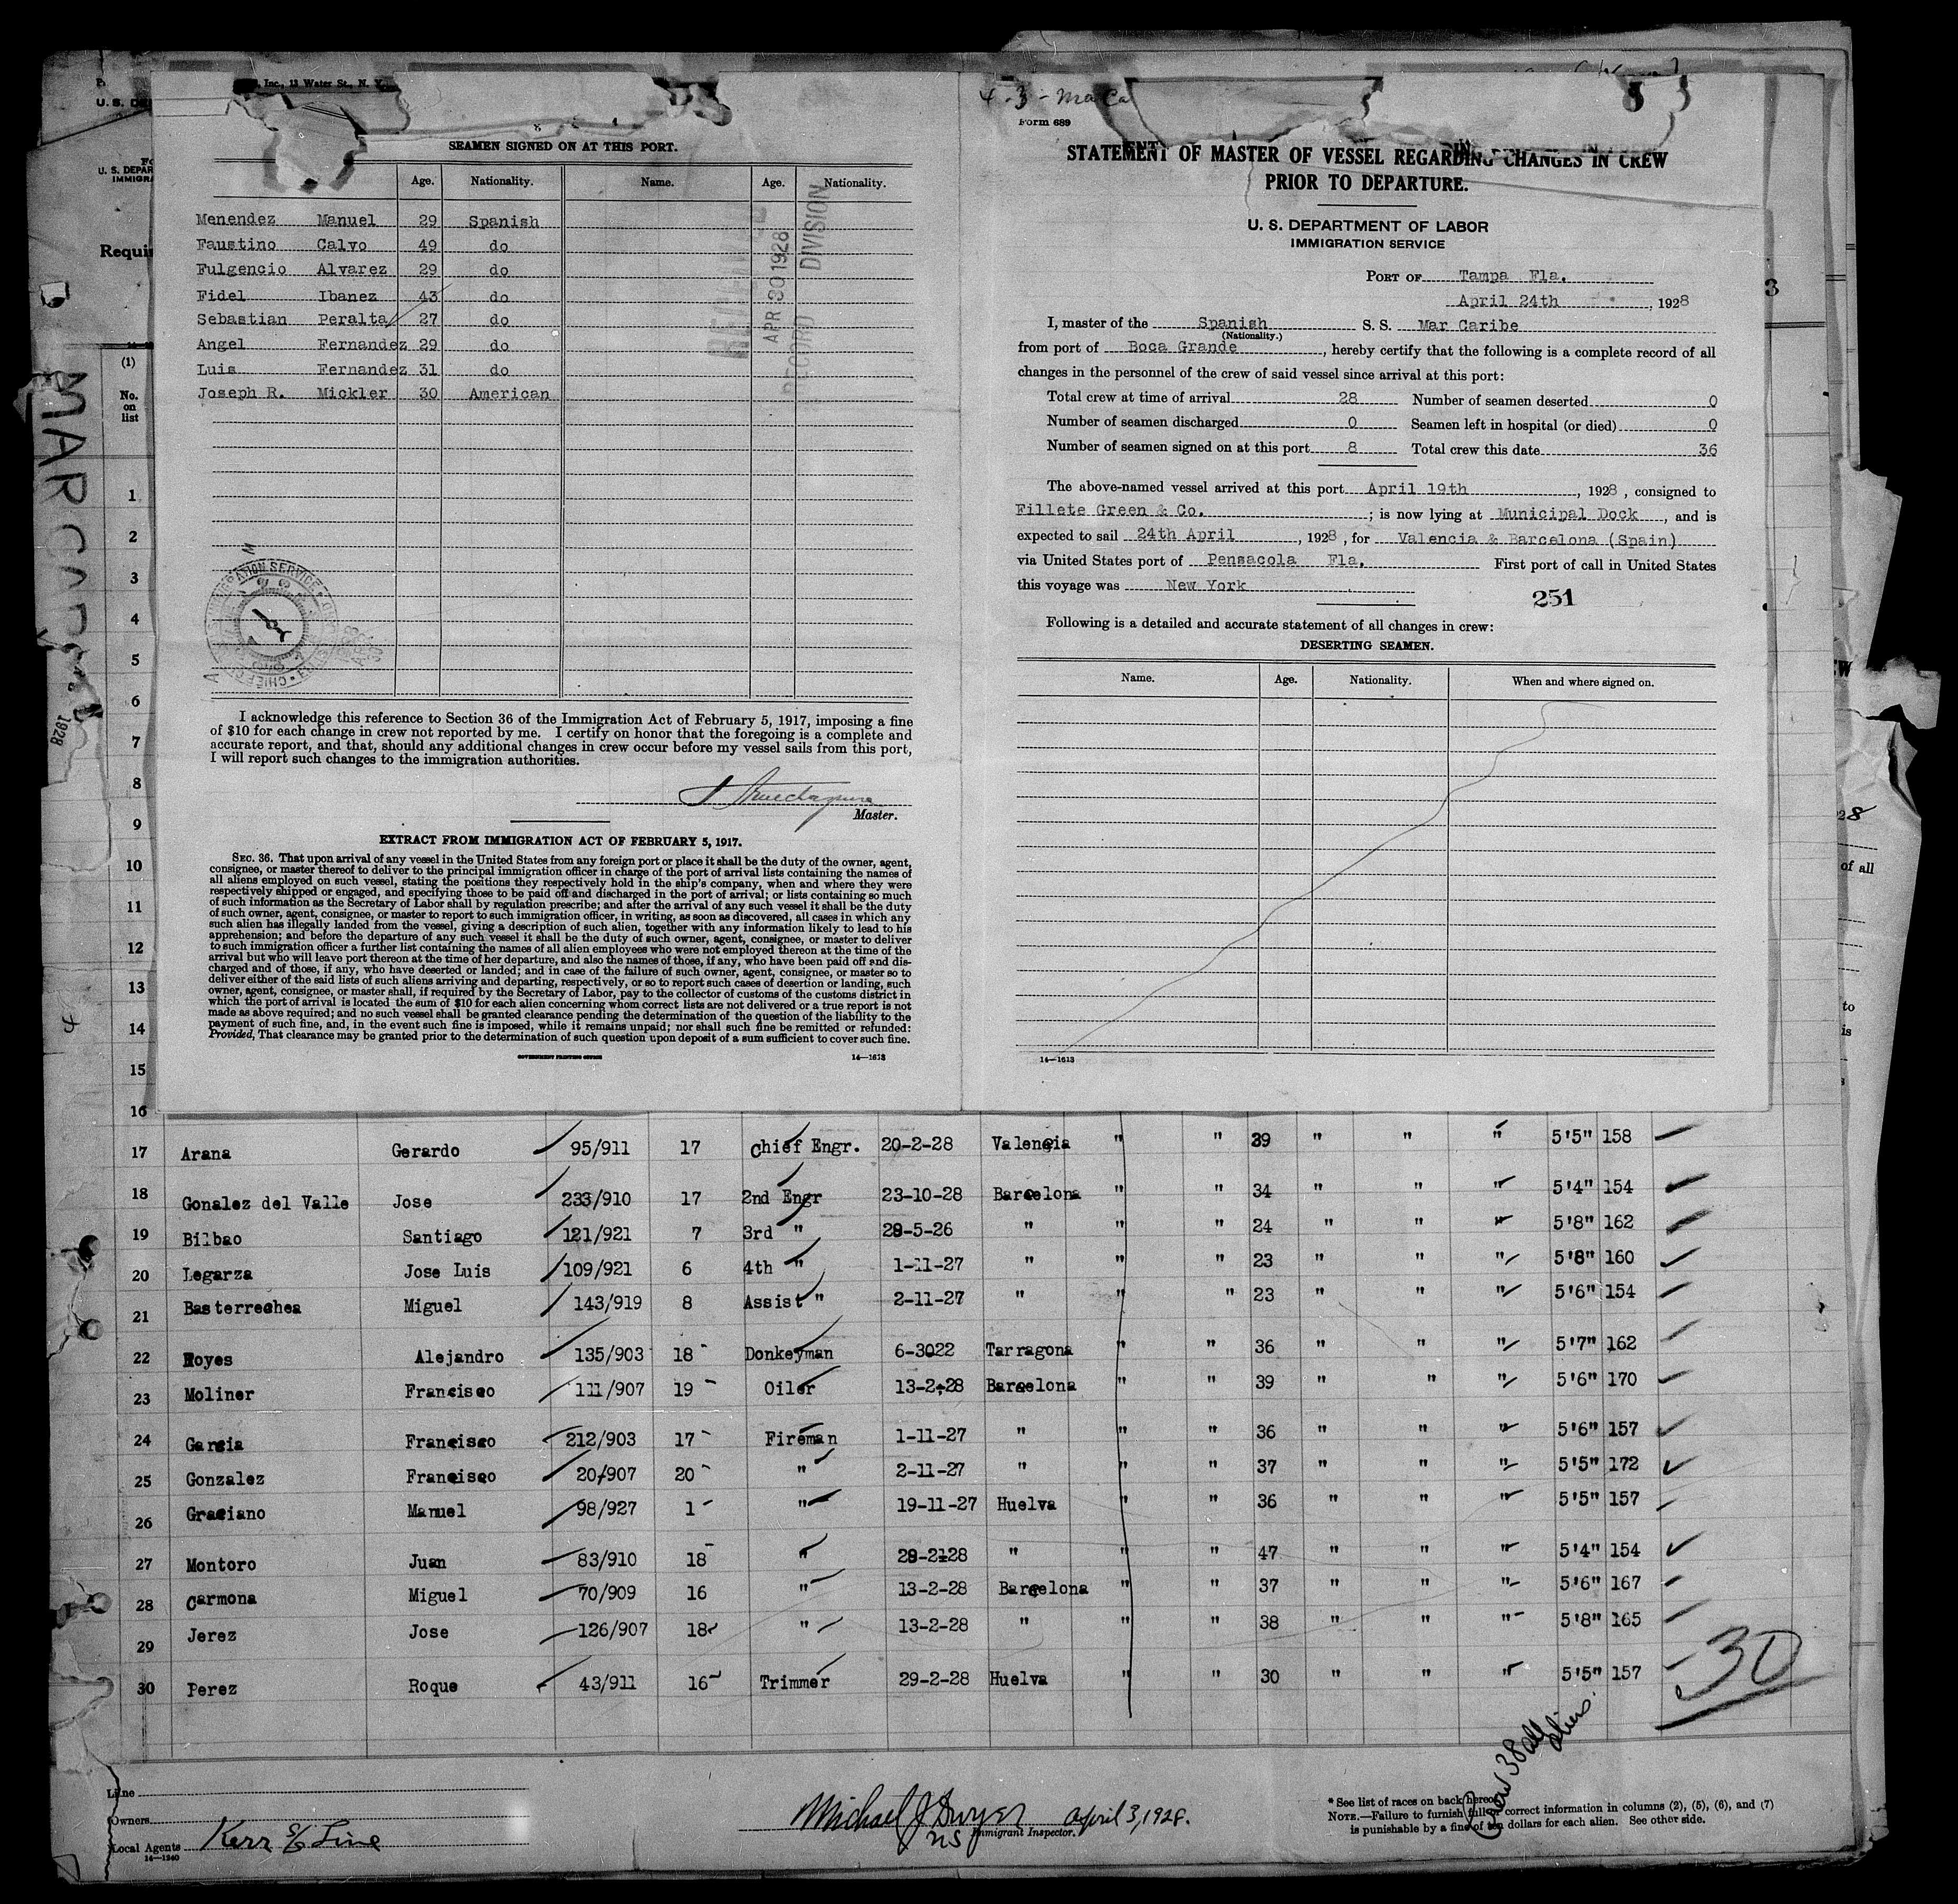 Inc., 13 Water St., N. Y.
SEAMEN SIGNED ON AT THIS PORT.
Age. Nationality. Name. Age. Nationality.
Menendez Manuel 29 Spanish
Faustino Calvo 49 do
Fulgencio Alvarez 29 do
Fidel Ibanez 43 do
Sebastian Peralta 27 do
Angel Fernandez 29 do
Luis Fernandez 31 do
Joseph R. Mickler 30 American
APR 30 1928
RECORD DIVISION
I acknowledge this reference to Section 36 of the Immigration Act of February 5, 1917, imposing a fine
of $10 for each change in crew not reported by me. I certify on honor that the foregoing is a complete and
accurate report, and that, should any additional changes in crew occur before my vessel sails from this port,
I will report such changes to the immigration authorities.
Master.
EXTRACT FROM IMMIGRATION ACT OF FEBRUARY 5, 1917.
SEC. 36. That upon arrival of any vessel in the United States from any foreign port or place it shall be the duty of the owner, agent,
consignee, or master thereof to deliver to the principal immigration officer in charge of the port of arrival lists containing the names of
all aliens employed on such vessel, stating the positions they respectively hold in the ship's company, when and where they were
respectively shipped or engaged, and specifying those to be paid off and discharged in the port of arrival; or lists containing so much
of such information as the Secretary of Labor shall by regulation prescribe; and after the arrival of any such vessel it shall be the duty
of such owner, agent, consignee, or master to report to such immigration officer, in writing, as soon as discovered, all cases in which any
such alien has illegally landed from the vessel, giving a description of such alien, together with any information likely to lead to his
apprehension; and before the departure of any such vessel it shall be the duty of such owner, agent, consignee, or master to deliver
to such immigration officer a further list containing the names of all alien employees who were not employed thereon at the time of the
arrival but who will leave port thereon at the time of her departure, and also the names of those, if any, who have been paid off and dis-
charged and of those, if any, who have deserted or landed; and in case of the failure of such owner, agent, consignee, or master so to
deliver either of the said lists of such aliens arriving and departing, respectively, or so to report such cases of desertion or landing, such
owner, agent, consignee, or master shall, if required by the Secretary of Labor, pay to the collector of customs of the customs district in
which the port of arrival is located the sum of $10 for each alien concerning whom correct lists are not delivered or a true report is not
made as above required; and no such vessel shall be granted clearance pending the determination of the question of the liability to the
payment of such fine, and, in the event such fine is imposed, while it remains unpaid; nor shall such fine be remitted or refunded:
Provided, That clearance may be granted prior to the determination of such question upon deposit of a sum sufficient to cover such fine.
GOVERNMENT PRINTING OFFICE 14—1613
Form 689
STATEMENT OF MASTER OF VESSEL REGARDING CHANGES IN CREW
PRIOR TO DEPARTURE.
U. S. DEPARTMENT OF LABOR
IMMIGRATION SERVICE
PORT OF Tampa Fla.
April 24th, 1928
I, master of the Spanish S. S. Mar Caribe
(Nationality.)
from port of Boca Grande, hereby certify that the following is a complete record of all
changes in the personnel of the crew of said vessel since arrival at this port:
Total crew at time of arrival 28 Number of seamen deserted 0
Number of seamen discharged 0 Seamen left in hospital (or died) 0
Number of seamen signed on at this port 8 Total crew this date 36
The above-named vessel arrived at this port April 19th, 1928, consigned to
Fillete Green & Co.; is now lying at Municipal Dock, and is
expected to sail 24th April, 1928, for Valencia & Barcelona (Spain)
via United States port of Pensacola Fla. First port of call in United States
this voyage was New York
251
Following is a detailed and accurate statement of all changes in crew:
DESERTING SEAMEN.
Name. Age. Nationality. When and where signed on.
14—1613
U. S. DEPAR
IMMIGRA
Requi
(1)
No.
on
list
MAR CARIBE
1928
1
2
3
4
5
6
7
8
9
10
11
12
13
14
15
16
17 Arana Gerardo 95/911 17 Chief Engr. 20-2-28 Valencia " " 39 " " " 5'5" 158
18 Gonalez del Valle Jose 233/910 17 2nd Engr 23-10-28 Barcelona " " 34 " " " 5'4" 154
19 Bilbao Santiago 121/921 7 3rd " 29-5-26 " " " 24 " " " 5'8" 162
20 Legarza Jose Luis 109/921 6 4th " 1-11-27 " " " 23 " " " 5'8" 160
21 Basterrechea Miguel 143/919 8 Assist " 2-11-27 " " " 23 " " " 5'6" 154
22 Royes Alejandro 135/903 18 Donkeyman 6-3022 Tarragona " " 36 " " " 5'7" 162
23 Moliner Francisco 111/907 19 Oiler 13-2-28 Barcelona " " 39 " " " 5'6" 170
24 Garcia Francisco 212/903 17 Fireman 1-11-27 " " " 36 " " " 5'6" 157
25 Gonzalez Francisco 20/907 20 " 2-11-27 " " " 37 " " " 5'5" 172
26 Graciano Manuel 98/927 1 " 19-11-27 Huelva " " 36 " " " 5'5" 157
27 Montoro Juan 83/910 18 " 29-2-28 " " " 47 " " " 5'4" 154
28 Carmona Miguel 70/909 16 " 13-2-28 Barcelona " " 37 " " " 5'6" 167
29 Jerez Jose 126/907 18 " 13-2-28 " " " 38 " " " 5'8" 165
30 Perez Roque 43/911 16 Trimmer 29-2-28 Huelva " " 30 " " " 5'5" 157
30
Crew 38 all aliens.
Line
Owners
Local Agents Kerr S/S Line
14—1240
Michael J Dwyer April 3, 1928.
Immigrant Inspector.
* See list of races on back hereof.
NOTE.—Failure to furnish full or correct information in columns (2), (5), (6), and (7)
is punishable by a fine of ten dollars for each alien. See other side.